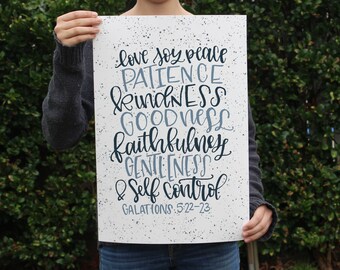 love joy peace
PATIENCE
&kindNESS
GOODNESS
faithfulness
GENTLENESS
& Self Control
GALATIONS. 5:22-23